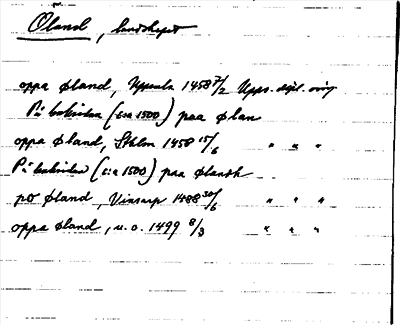 Öland, landskapet
oppa øland, Uppsala 1458 7/2 Upps. dipl. orig
På baksidan (c:a 1500) paa ølan
oppa øland, Sthlm 1458 15/6 " " "
På baksidan (c:a 1500) paa ølandh
po øland, Vinsarp 1488 30/6 " " "
oppa øland, u.o. 1499 8/3 " " "